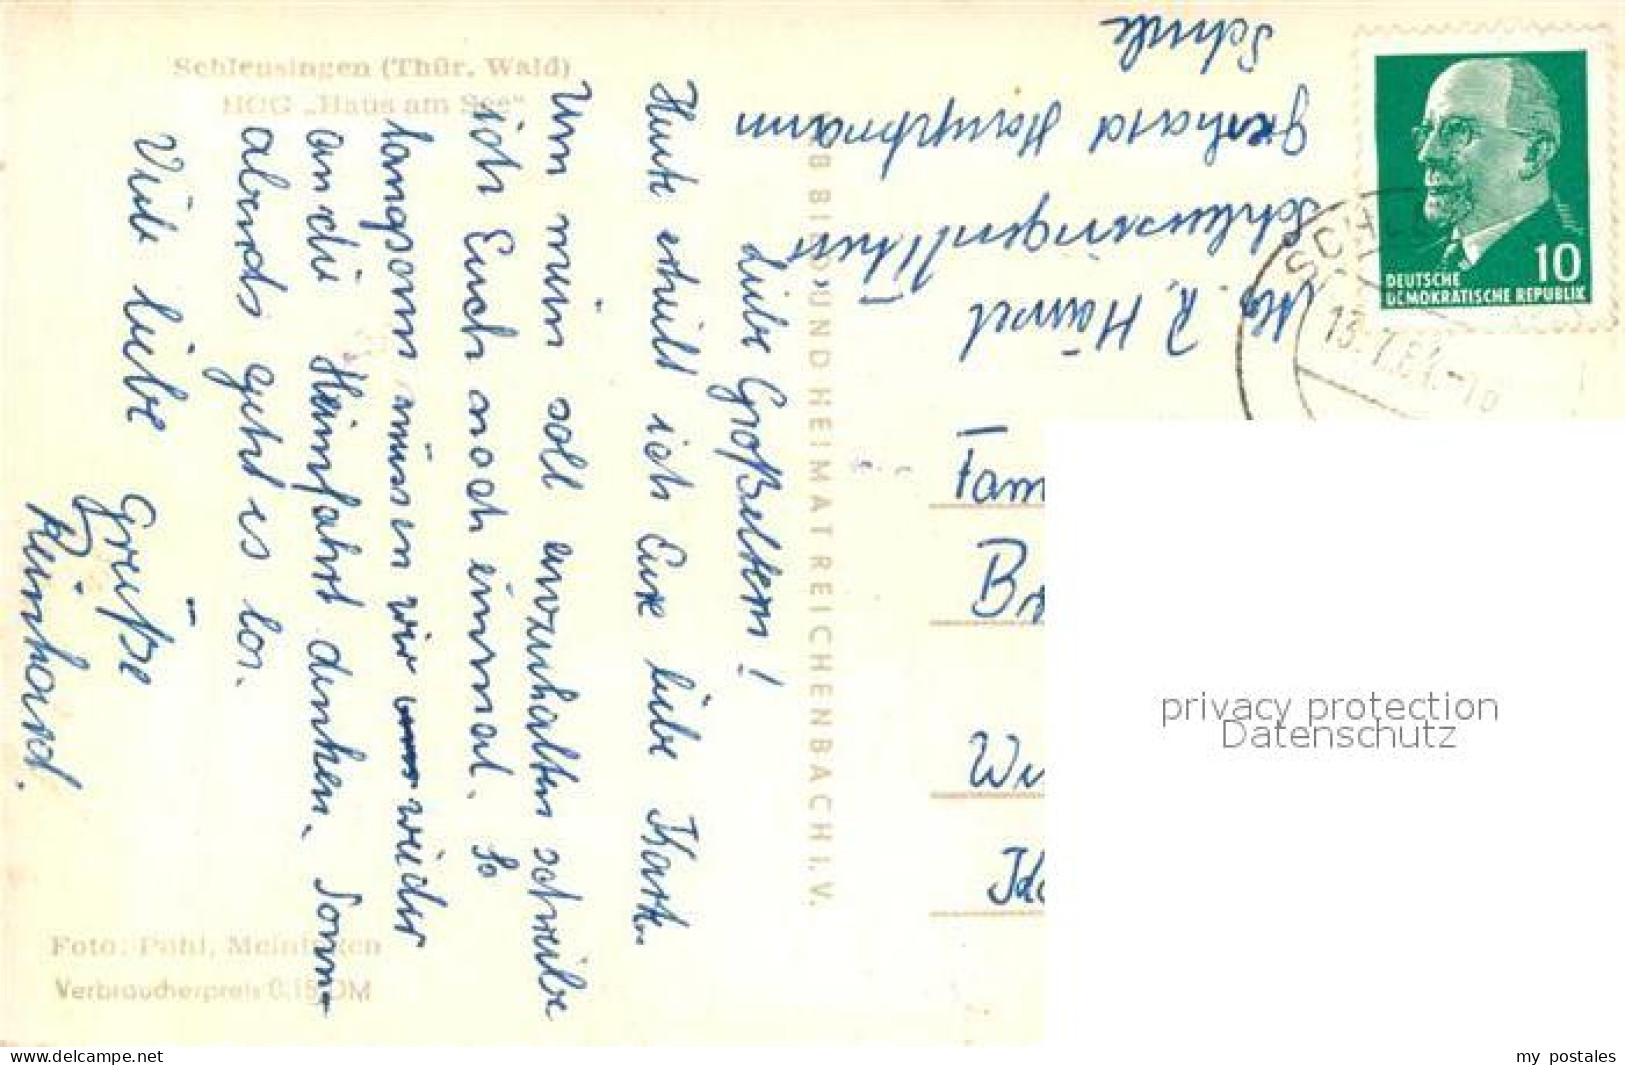 Schleusingen (Thür. Wald)
HOG „Haus am See“
Liebe Großeltern!
Heute erhielt ich Eure liebe Karte.
Um mein soll einzuhalten schreibe
ich Euch noch einmal. So
langsam müssen wir wieder
an die Heimfahrt denken. Sonn-
abends geht es los.
Viele liebe Grüße
Reinhard.
Foto: Pohl, Meiningen
Verbraucherpreis 0,15 DM
BILD UND HEIMAT REICHENBACH I. V.
Abs. R. Hänsel
Schleusingen/Thür
Gerhard Hauptmann
Schule
DEUTSCHE
DEMOKRATISCHE REPUBLIK
10
Fam
Br
privacy protection
Datenschutz
my postales
www.delcampe.net